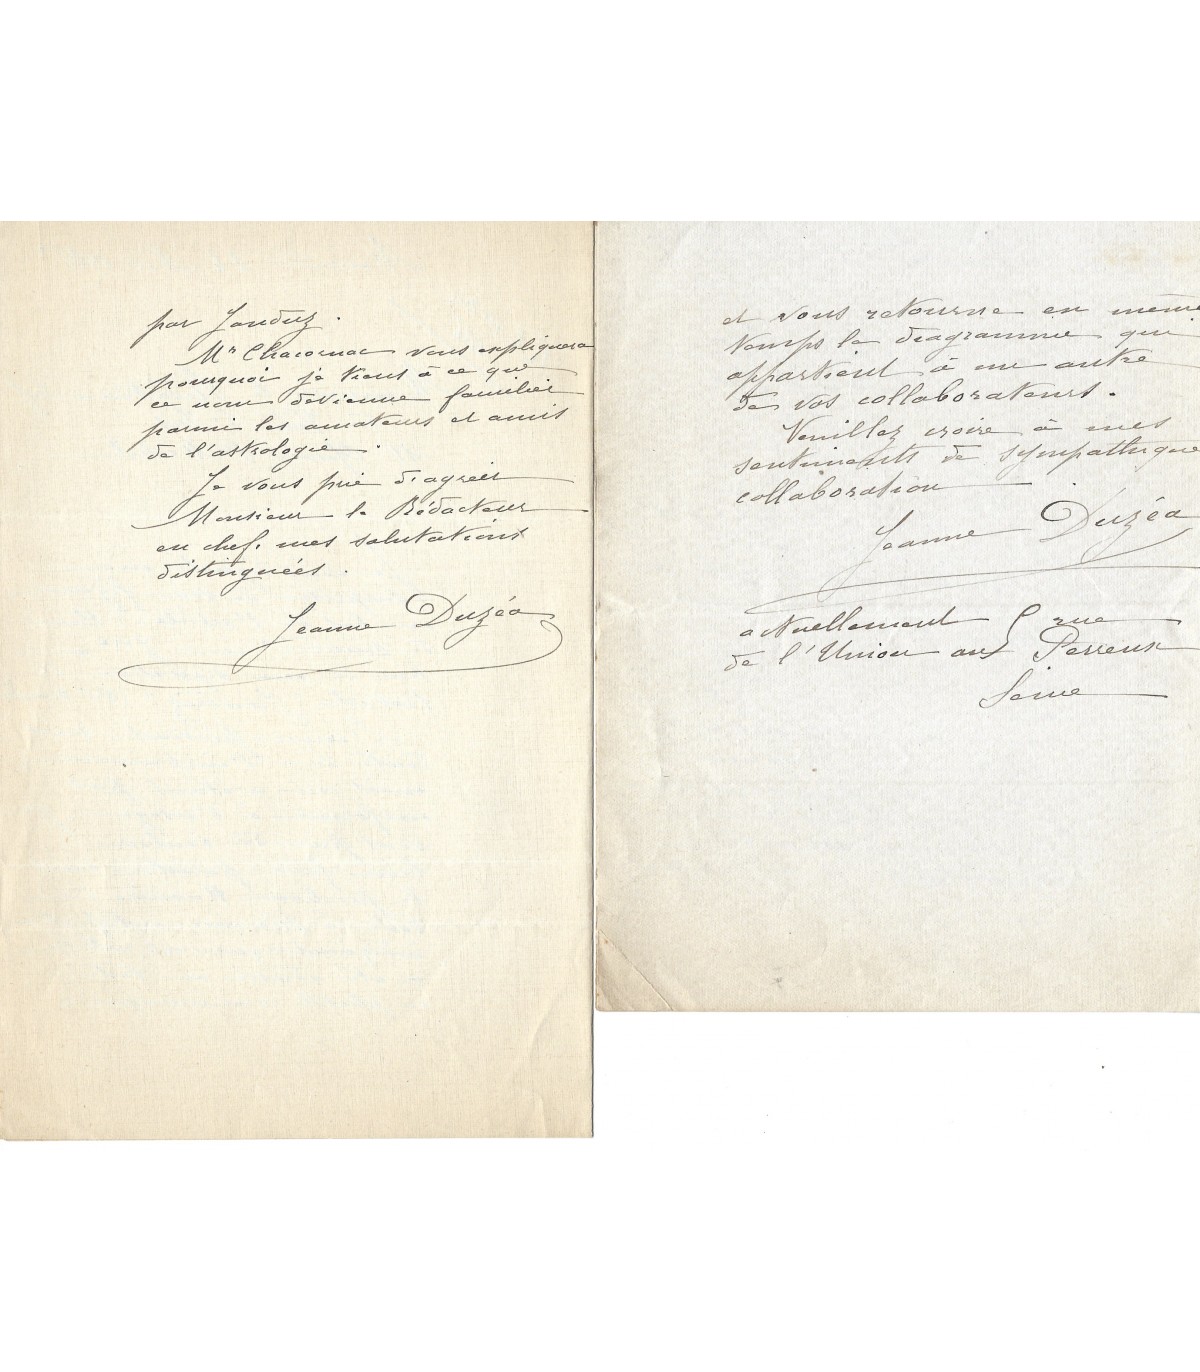 par Janduz.
Mr Chacornac vous expliquera
pourquoi je tiens à ce que
ce nom devienne familier
parmi les amateurs et amis
de l'astrologie.
Je vous prie d'agréer
Monsieur le Rédacteur
en chef. mes salutations
distinguées.
Jeanne Duzéa
et vous retourne en même
temps le diagramme qui
appartient à un autre
de vos collaborateurs.
Veuillez croire à mes
sentiments de sympathique
collaboration
Jeanne Duzéa
actuellement 5 rue
de l'Union aux Perreux
Seine